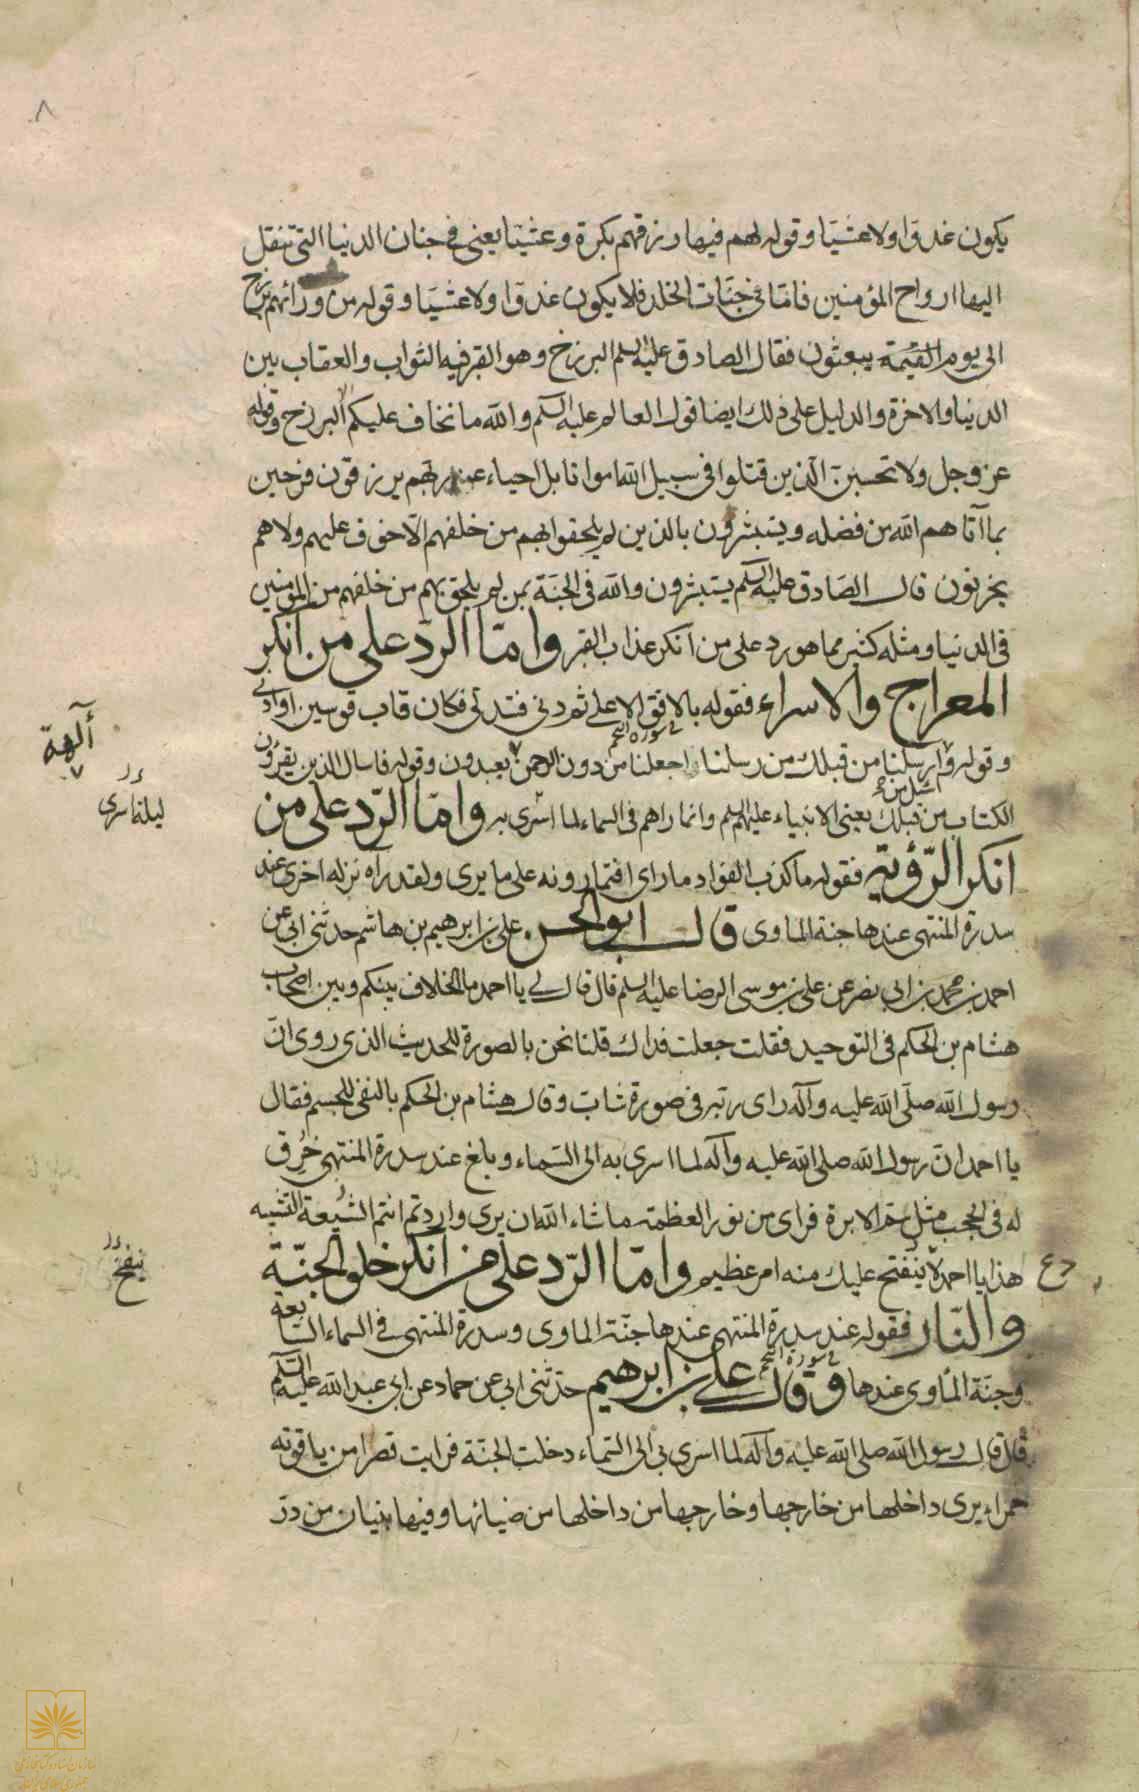 ٨
يكون غدوّا ولا عشيّا وقوله لهم فيها رزقهم بكرة وعشيّا يعنى فى جنان الدنيا التى تنقل
اليها ارواح المؤمنين فامّا فى جنّات الخلد فلا يكون غدوّا ولا عشيّا وقوله من ورائهم برزخ
الى يوم القيمة يبعثون فقال الصادق عليه السلم البرزخ وهو القبر فيه الثواب والعقاب بين
الدنيا والاخرة والدليل على ذلك ايضا قول العالم عليه السلم والله ما نخاف عليكم الّا البرزخ وقوله
عز وجل ولا تحسبنّ الّذين قتلوا فى سبيل الله امواتا بل احياء عند ربّهم يرزقون فرحين
بما آتاهم الله من فضله ويستبشرون بالذين لم يلحقوا بهم من خلفهم الّا خوف عليهم ولا هم
يحزنون قال الصّادق عليه السلم يستبشرون والله فى الجنّة بمن لم يلحق بهم من خلفهم من المؤمنين
فى الدنيا ومثله كثير مما هو رد على من انكر عذاب القبر وامّا الردّ على من انكر
المعراج والاسراء فقوله بالافق الاعلى ثم دنى فتدلّى فكان قاب قوسين او ادنى
سورة النجم
وقوله وارسلنا من قبلك من رسلنا اجعلنا من دون الرحمن يعبدون وقوله فاسال الذين يقرؤن
آلهة
الكتاب من قبلك يعنى الانبياء عليهم السلم وانما راهم فى السماء لما اسرى به وامّا الرّد على من
ليلة اسرى
انكر الرّؤية فقوله ما كذب الفؤاد ما راى افتمارونه على ما يرى ولقد راه نزلة اخرى عند
سدرة المنتهى عندها جنة الماوى قال ابو الحسن على بن ابرهيم بن هاشم حدثنى ابى عن
احمد بن محمد بن ابى نصر عن على بن موسى الرضا عليه السلم قال قال لى يا احمد ما الخلاف بينكم وبين اصحاب
هشام بن الحكم فى التوحيد فقلت جعلت فداك قلنا نحن بالصورة للحديث الذى روى انّ
رسول الله صلّى الله عليه وآله راى ربّه فى صورة شابّ وقال هشام بن الحكم بالنفى للجسم فقال
يا احمد انّ رسول الله صلى الله عليه وآله لما اسرى به الى السّماء وبلغ عند سدرة المنتهى خُرِق
له فى الحجب مثل سمّ الابرة فراى من نور العظمة ما شاء الله ان يرى واردتم انتم التشبيه
هذا يا احمد لا ينفتح عليك منه امر عظيم وامّا الرّد على من انكر خلق الجنّة
والنّار فقوله عند سدرة المنتهى عندها جنّة الماوى وسدرة المنتهى فى السماء السّابعة
سورة النجم
وجنّة المأوى عندها وقال على بن ابرهيم حدّثنى ابى عن حماد عن ابى عبد الله عليه السّلم
قال قال رسول الله صلى الله عليه وآله لما اسرى بى الى السّماء دخلت الجنّة فرايت قصرا من ياقوته
حمراء يرى داخلها من خارجها وخارجها من داخلها من ضيائها وفيها بنيان من درّ